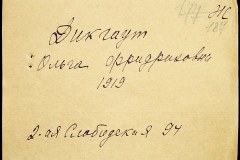 Ж
Дикгаут
Ольга Фридриховн
1919
2-ая Слободская 94